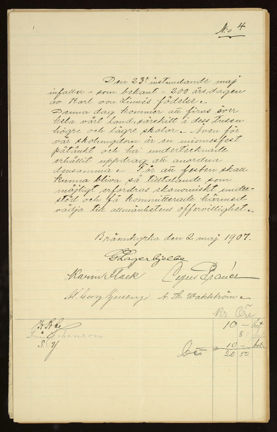 No 4
Den 23 instundande maj
infaller - som bekant - 200 årsdagen
av Karl von Linnés födelse.
Denna dag kommer att firas över
hela vårt land, särskilt i dess
högre och lägre skolor. Även för
vår skolungdom är en minnesfest
påtänkt och har undertecknade
erhållit uppdrag att anordna
densamma. För att festen skall
kunna bliva så tilltalande som
möjligt erfordras ekonomiskt under-
stöd och få kommitterade härmed
vädja till allmänhetens offervillighet.
Brännkyrka den 2 maj 1907.
A. Th. Wahlström
Kr. Öre
10 -
10 -
20 50